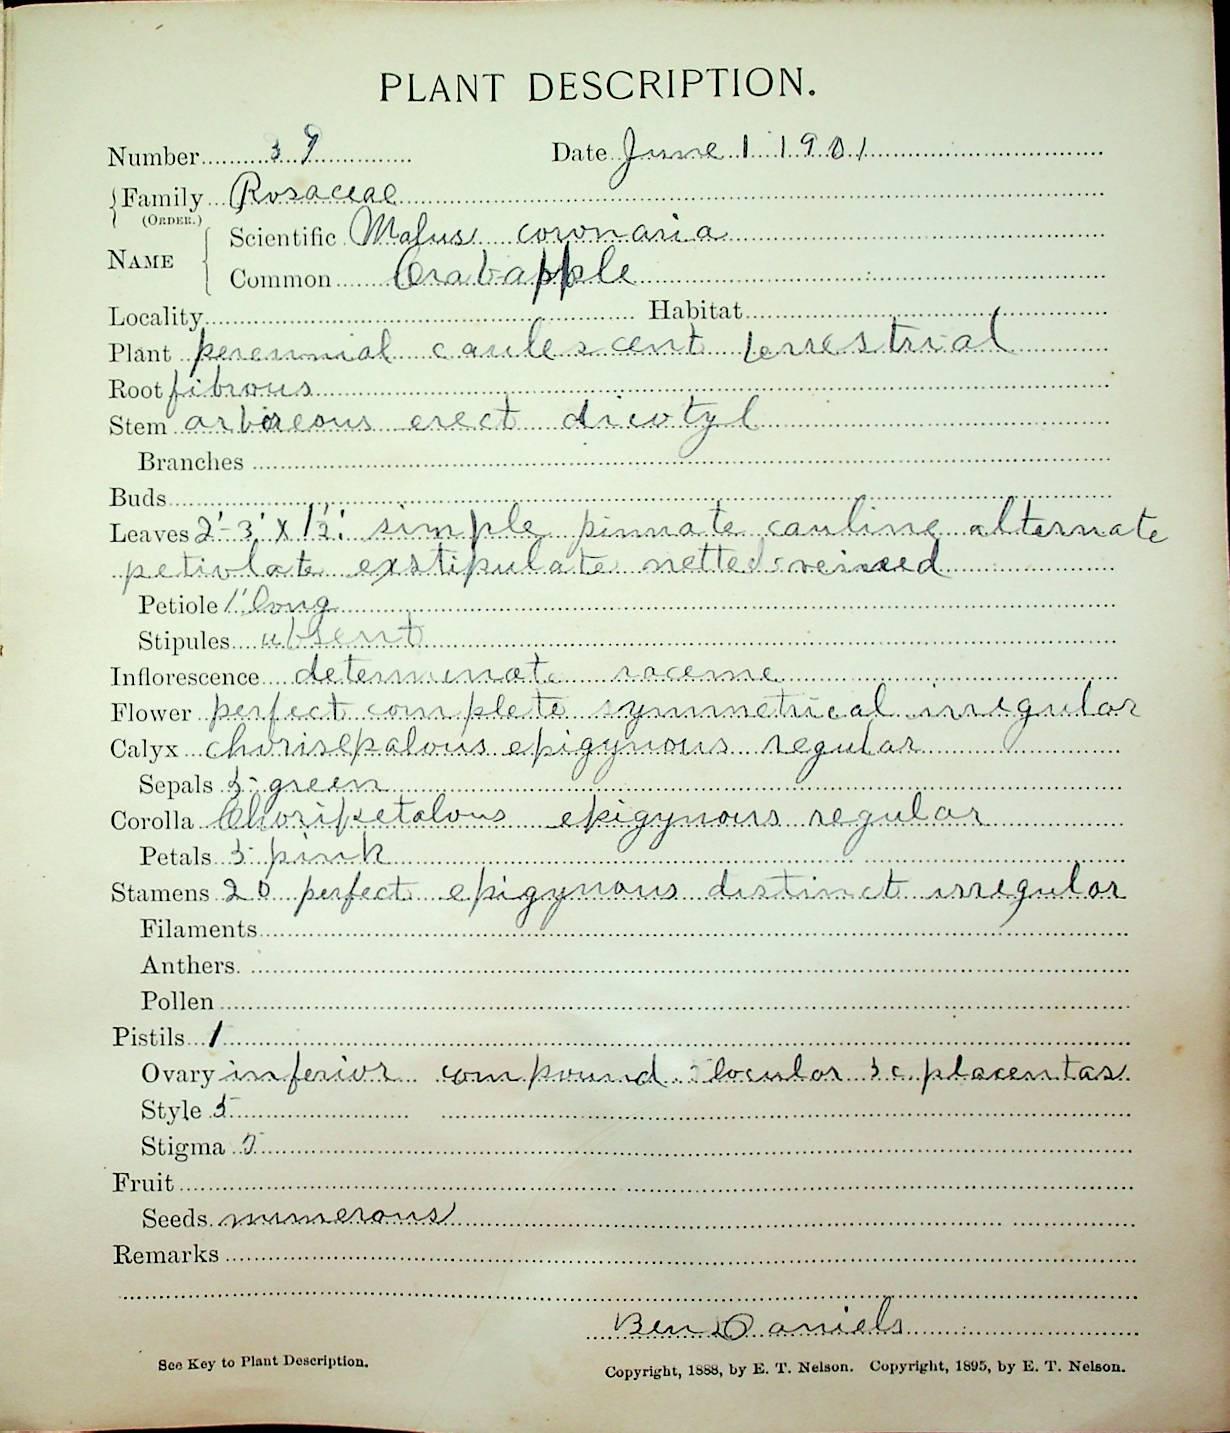 PLANT DESCRIPTION.
Number 39 Date June 1 1901
Family Rosaceae
(ORDER.)
NAME Scientific Malus coronaria
Common Crabapple
Locality Habitat
Plant perennial caulescent terrestrial
Root fibrous
Stem arboreous erect dicotyl
Branches
Buds
Leaves 2'-3' x 1½' simple pinnate cauline alternate
petiolate exstipulate netted veined
Petiole 1' long
Stipules absent
Inflorescence determinate raceme
Flower perfect complete symmetrical irregular
Calyx chorisepalous epigynous regular
Sepals 5 green
Corolla Choripetalous epigynous regular
Petals 5 pink
Stamens 20 perfect epigynous distinct irregular
Filaments
Anthers.
Pollen
Pistils 1
Ovary inferior compound locular c. placentas
Style 5
Stigma 5
Fruit
Seeds numerous
Remarks
Ben Daniels
See Key to Plant Description. Copyright, 1888, by E. T. Nelson. Copyright, 1895, by E. T. Nelson.